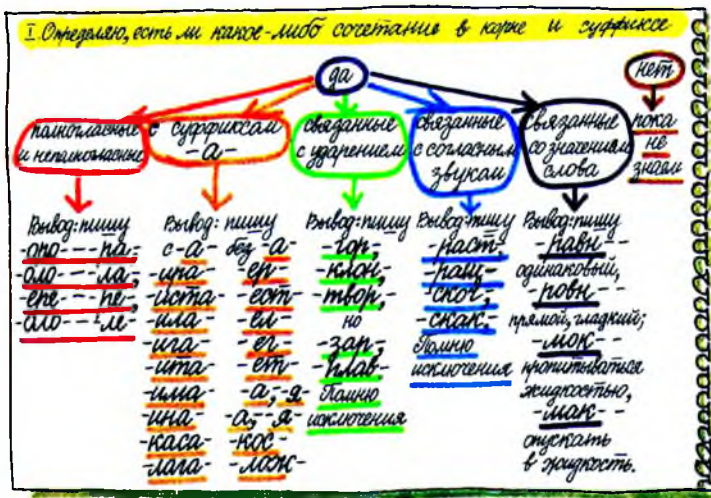 I. Определяю, есть ли какое-либо сочетание в корне и суффиксе
да
нет
полногласные
и неполногласные
с суффиксом
-а-
связанные
с ударением
связанные
с согласным
звуком
связанные
со значением
слова
пока
не
знаем
Вывод: пишу
-оро- - -ра-,
-оло- - -ла-,
-ере- - -ре-,
-оло- - -ле-
Вывод: пишу
с -а- без -а-
-ира- -ер-
-иста- -ест-
-ила- -ел-
-ига- -ег-
-ита- -ет-
-има- -а, -я
-ина- -а, -я-
-каса- -кос-
-лага- -лож-
Вывод: пишу
-гор,-
-клон,-
-твор,-
но
-зар,-
-плав-
Помню
исключения
Вывод: пишу
-раст,-
-ращ,-
-скоч,-
-скак.-
Помню
исключения
Вывод: пишу
-равн-
одинаковый,
-ровн-
прямой, гладкий;
-мок-
пропитываться
жидкостью,
-мак-
опускать
в жидкость.